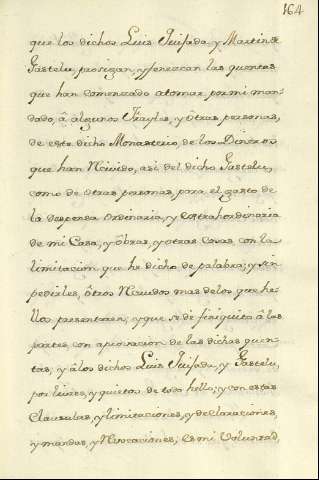 164
que los dichos Luis Quijada, y Martin de
Gastelu, prosigan, y fenezcan las quentas
que han comenzado a tomar por mi man-
dado, â algunos frayles, y ôtras personas,
de este dicho Monasterio, de los Dineros
que han Recivido, asi del dicho Gastelu,
como de otras personas, para el gasto de
la despensa ordinaria, y extrahordinaria
de mi Casa, y ôbras, y otras cosas, con la
limitacion que he dicho de palabra; y sin
pedirles, ôtros Recivdos mas de los que he-
llos presentaren; y que se de finiquito â las
partes, con aprovacion de las dichas quen-
tas; y â los dichos Luis Quijada, y Gastelu,
por libres, y quietos de todo hello; y con estas
Clausulas, y limitaciones, y declaraciones,
y mandas, y Revocaciones; es mi Voluntad,